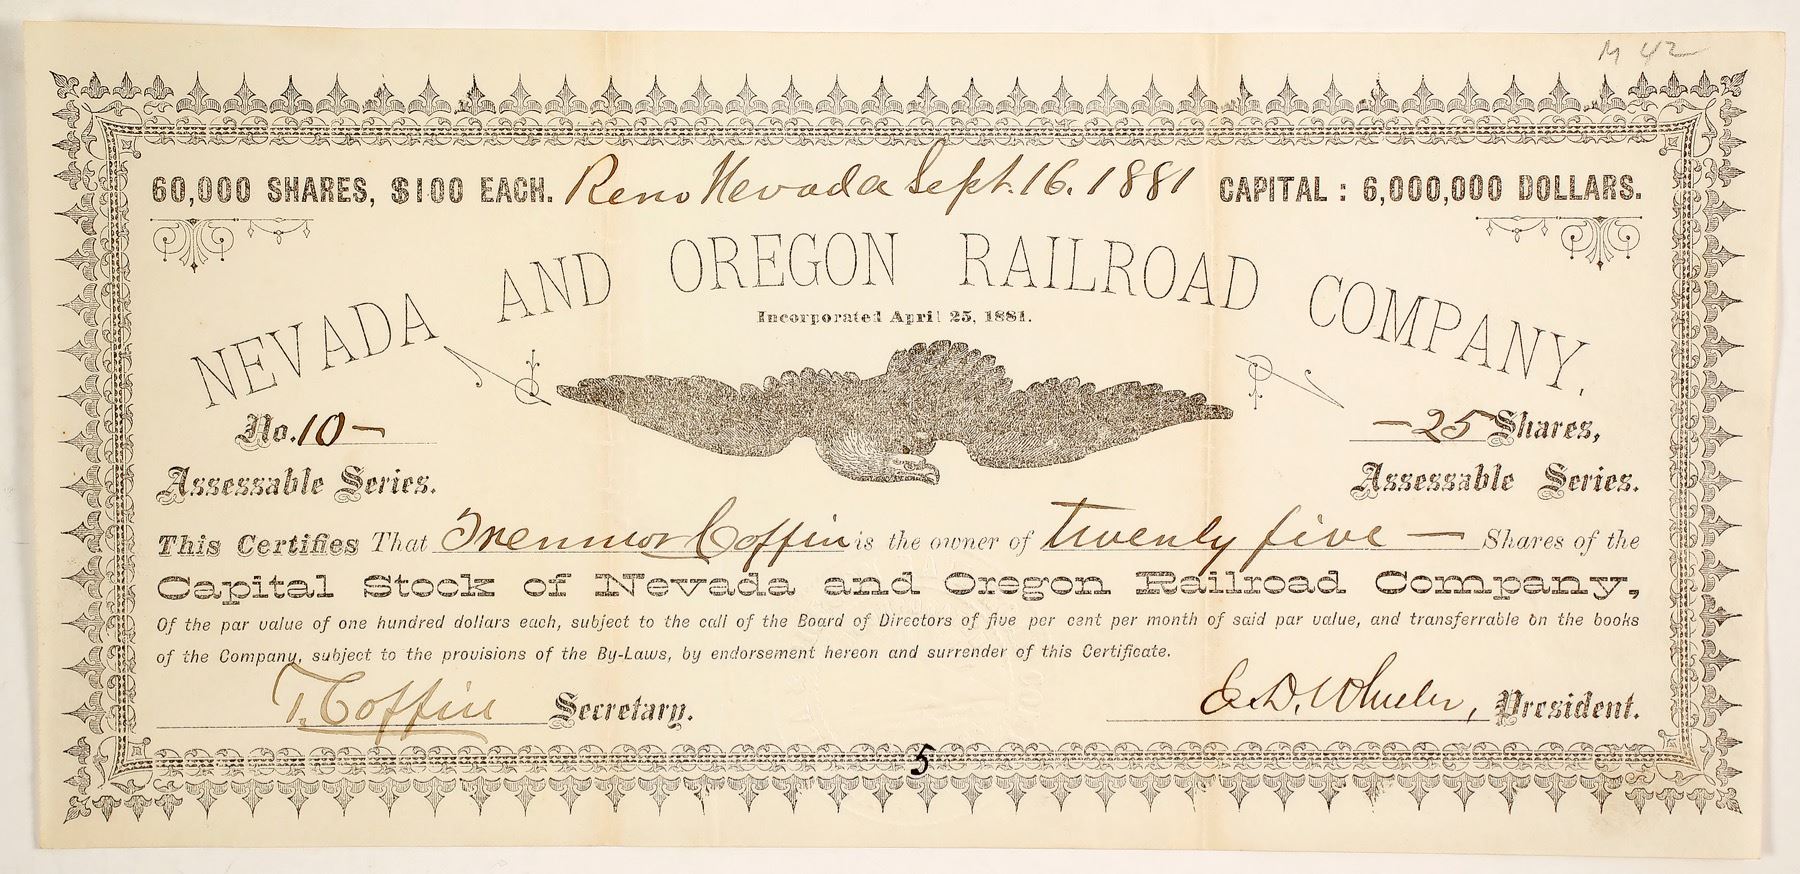 M 42
60,000 SHARES, $100 EACH. Reno Nevada Sept. 16. 1881 CAPITAL : 6,000,000 DOLLARS.
NEVADA AND OREGON RAILROAD COMPANY.
Incorporated April 25, 1881.
No. 10 — — 25 Shares,
Assessable Series. Assessable Series.
This Certifies That Trenmor Coffin is the owner of twenty five — Shares of the
Capital Stock of Nevada and Oregon Railroad Company,
Of the par value of one hundred dollars each, subject to the call of the Board of Directors of five per cent per month of said par value, and transferrable on the books
of the Company, subject to the provisions of the By-Laws, by endorsement hereon and surrender of this Certificate.
T. Coffin Secretary. E. D. Wheeler, President.
5